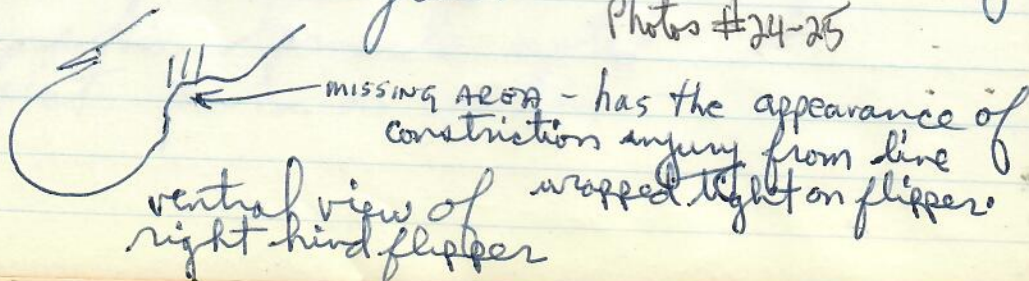 Photos #24-25
MISSING AREA - has the appearance of
constriction injury from line
wrapped tight on flipper.
ventral view of
right hind flipper